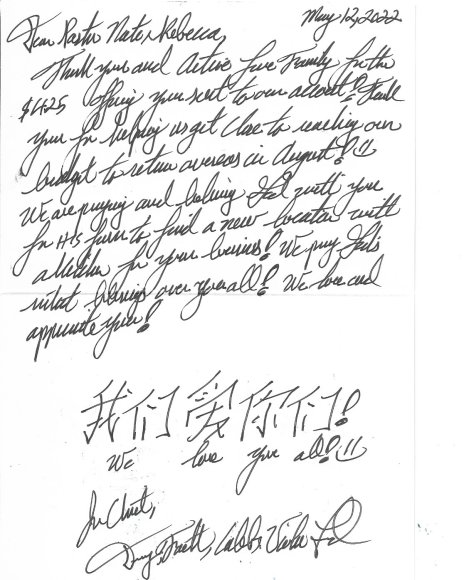 May 12, 2022
Dear Pastor Nate & Rebecca,
Thank you and Active Love Family for the
$625 offering you sent to our account! Thank
you for helping us get close to reaching our
budget to return overseas in August!
We are praying and believing God with you
for His favor to find a new location with
a kitchen for your business! We pray God's
richest blessings over you all! We love and
appreciate you!
我们爱你们!
We love you all!
In Christ,